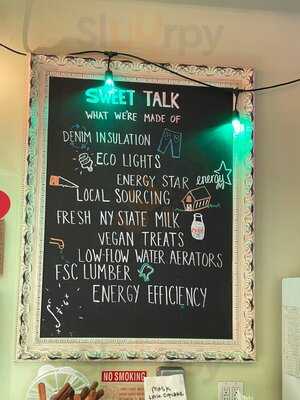 Sluurpy
SWEET TALK
WHAT WE'RE MADE OF
DENIM INSULATION
ECO LIGHTS
ENERGY STAR
energy
LOCAL SOURCING
FRESH NY STATE MILK
VEGAN TREATS
LOW-FLOW WATER AERATORS
FSC LUMBER
ENERGY EFFICIENCY
NO SMOKING